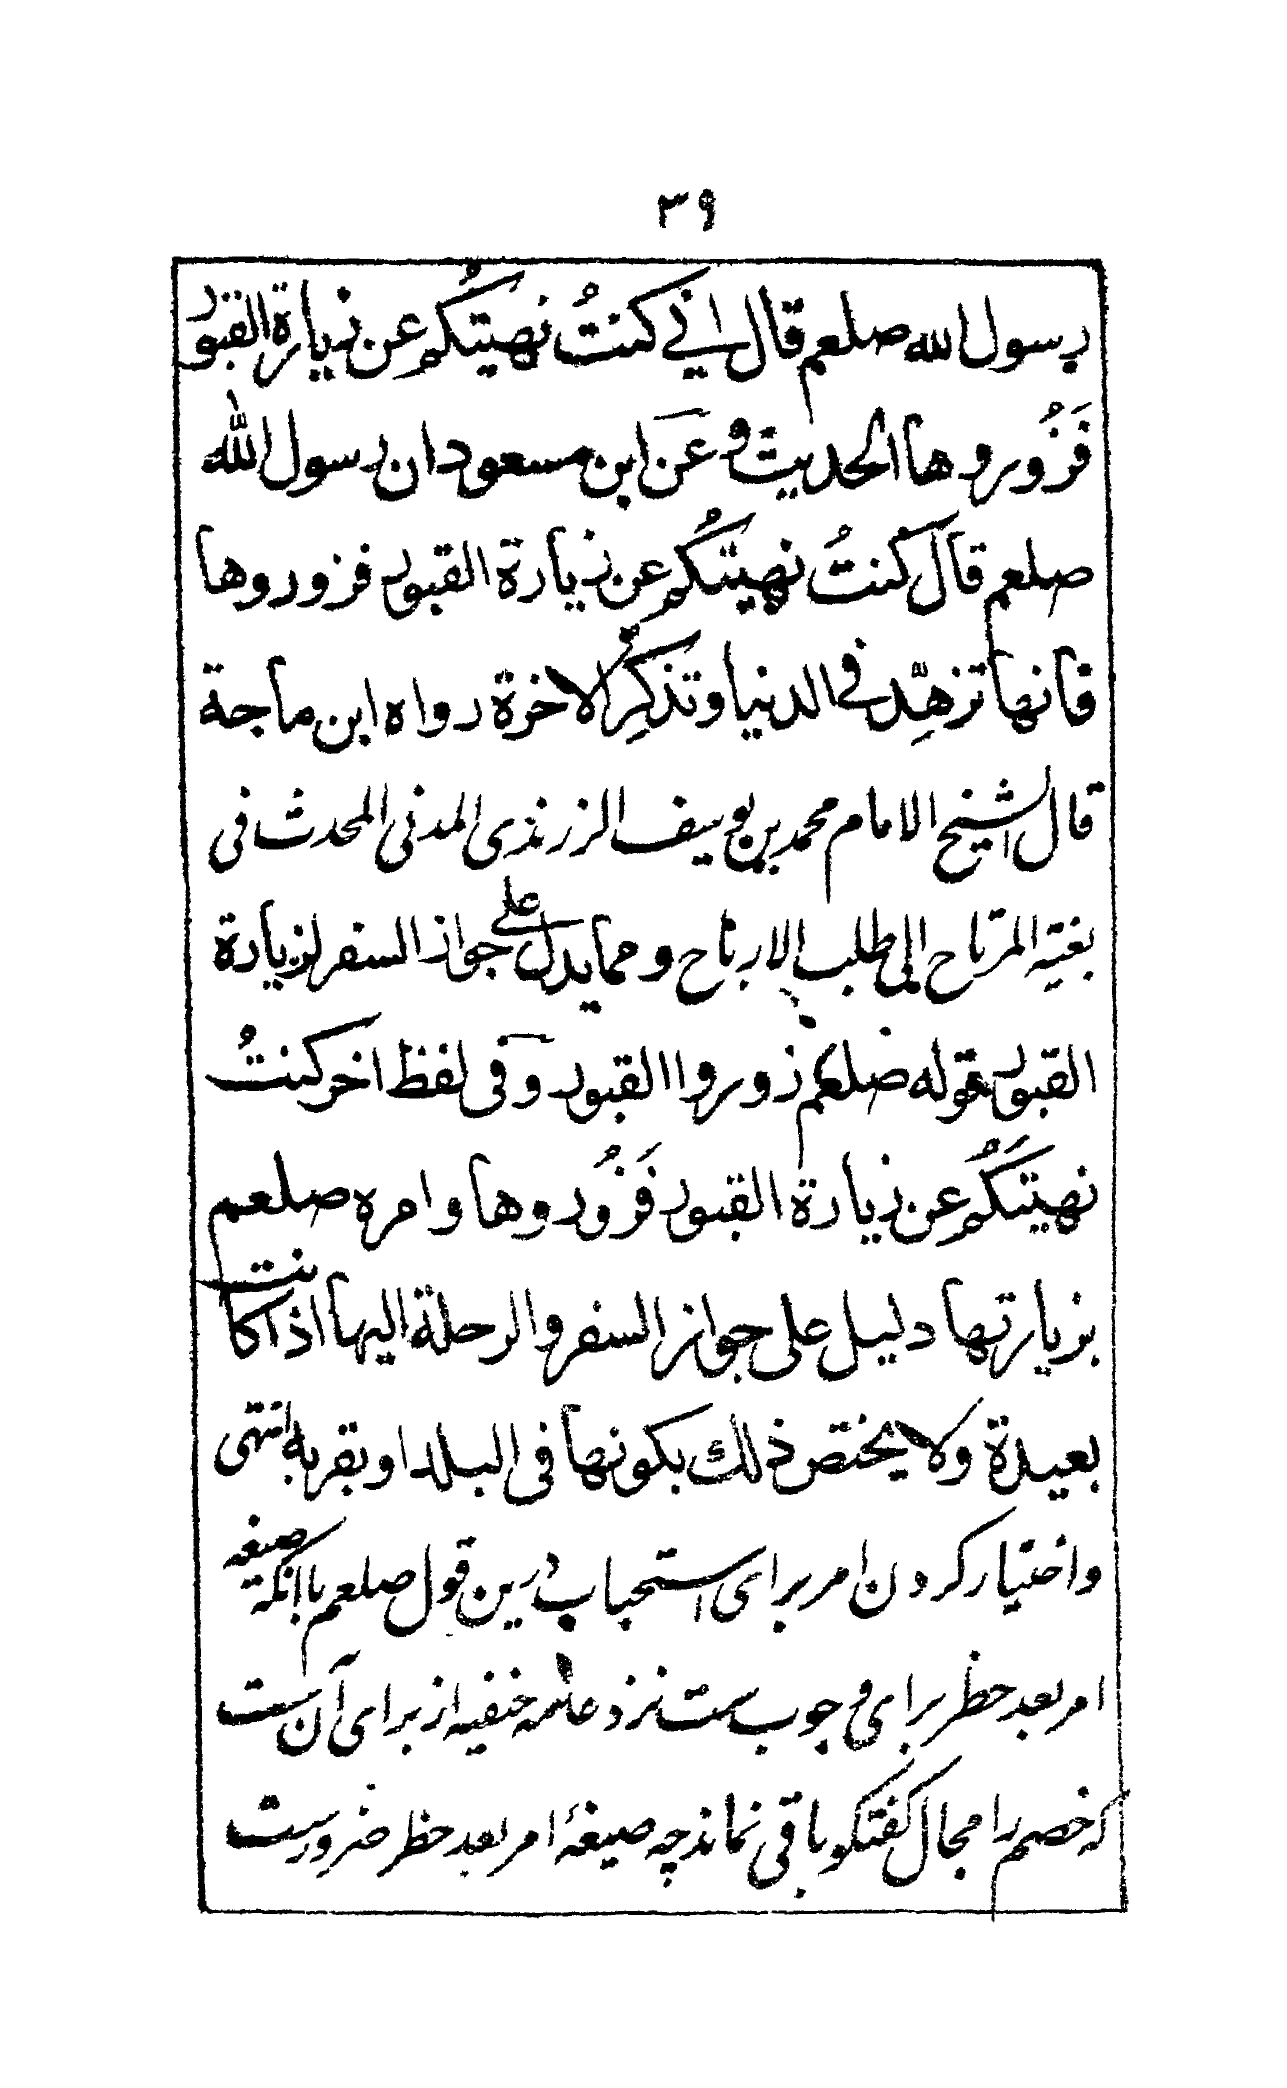 ٣٩
رسول الله صلعم قال اني كنتُ نهيتكُم عن زيارة القبور
فَزُوروها الحديث وعن ابن مسعود ان رسول الله
صلعم قال كنتُ نهيتكُم عن زيارة القبور فزوروها
فانها تزهِّد في الدنيا وتذكِّر الاخرة رواه ابن ماجة
قال الشيخ الامام محمد بن يوسف الزرندى المدنى المحدث فى
بغية المرتاح الى طلب الارباح ومما يدل على جواز السفر لزيارة
القبور قوله صلعم زوروا القبور وفى لفظ اخر كنتُ
نهيتكُم عن زيارة القبور فَزُوروها وامره صلعم
بزيارتها دليل على جواز السفر والرحلة اليها اذا كانت
بعيدة ولا يختص ذلك بكونها فى البلد او بقربه انتهى
واختيار كردن امر براى استحباب درين قول صلعم با انكه صيغه
امر بعد حظر براى وجوب ست نزد عامه حنفيه از براى آن ست
كه خصم را مجال كفتكو باقى نماند چه صيغهٔ امر بعد حظر ضرورست